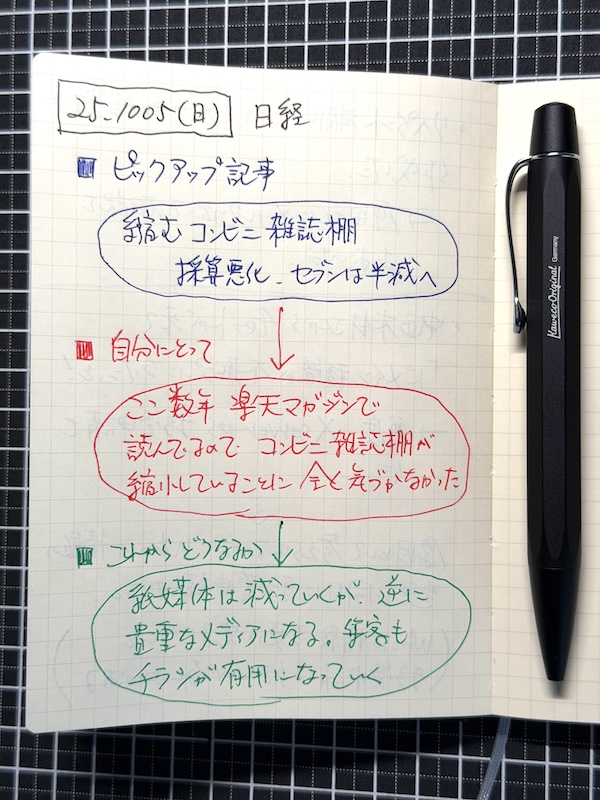 25.1005(日) 日経
ピックアップ記事
縮む コンビニ 雑誌棚
採算悪化、セブンは半減へ
自分にとって
ここ数年 楽天マガジンで
読んでるので コンビニ雑誌棚が
縮小していることに 全く気づかなかった
これから どうなるか
紙媒体は減っていくが、逆に
貴重なメディアになる。集客も
チラシが有用になっていく
Kaweco-Original Germany